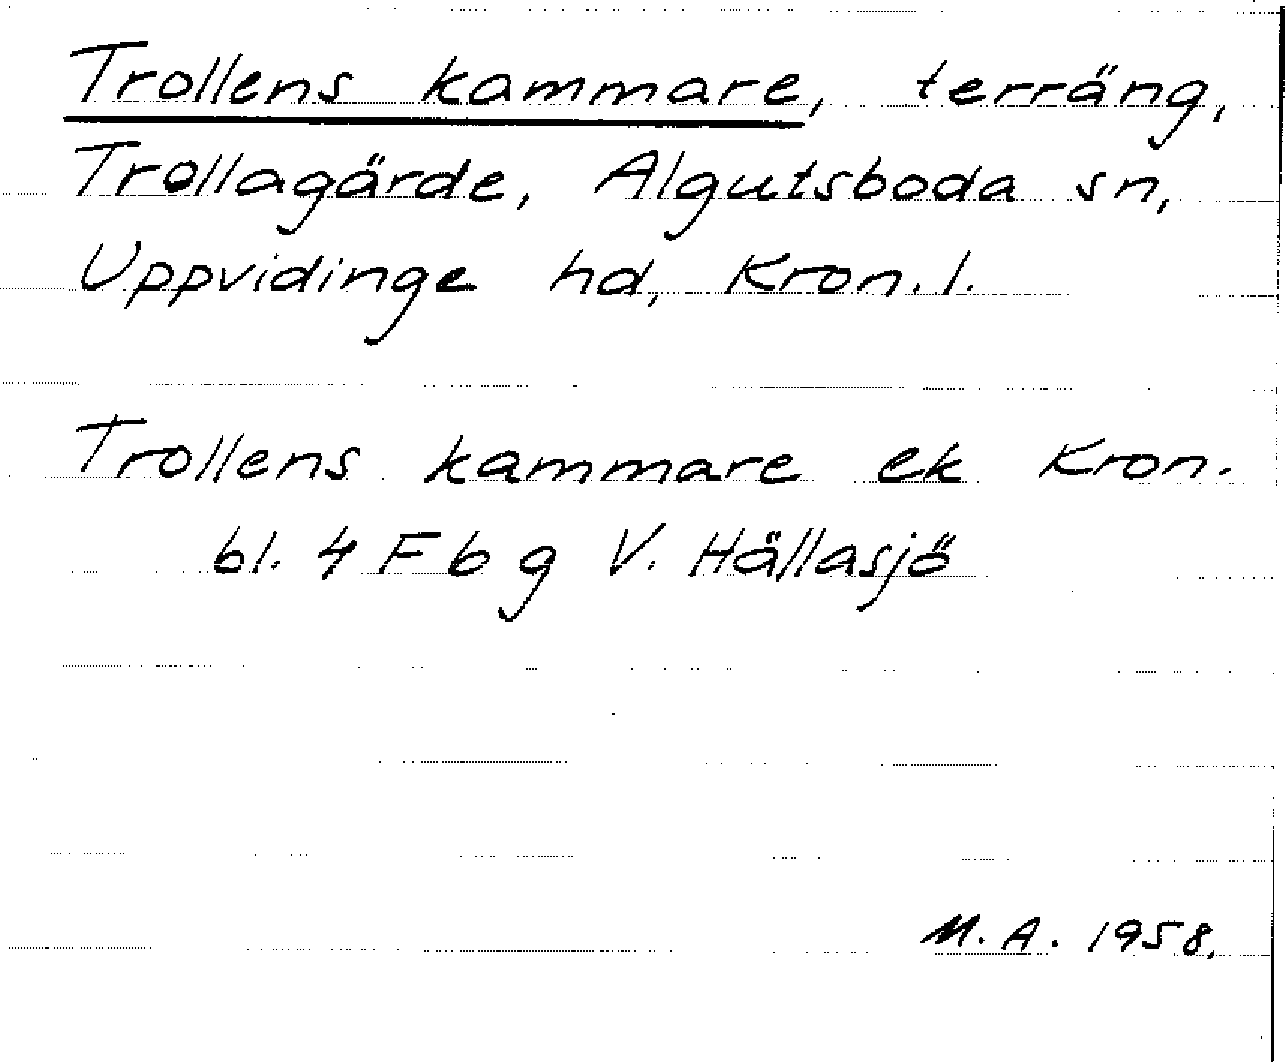 Trollens kammare, terräng,
Trollagärde, Algutsboda sn,
Uppvidinge hd, Kron. l.
Trollens kammare ek Kron.
bl. 4 F b g V. Hällasjö
M. A. 1958.